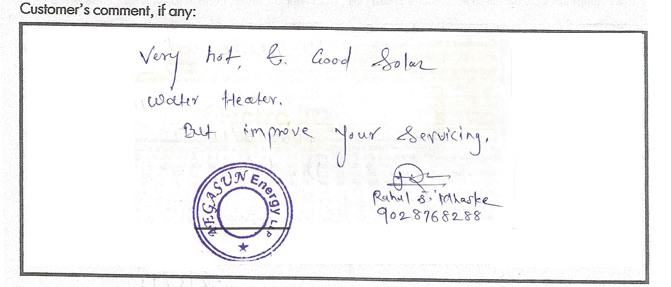 Customer's comment, if any:
Very hot, & Good Solar
Water Heater.
But improve your Servicing.
MEGASUN Energy LLP
Rahul S. Mhaske
9028768288